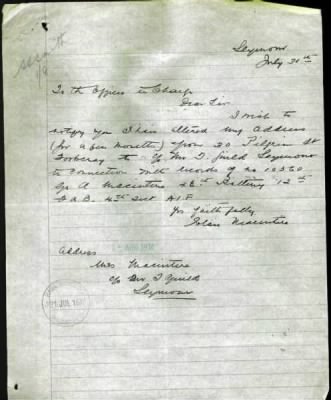 Seymour
July 30th
To the Officer in Charge
Dear Sir
I wish to
notify you I have altered my address
(for a few months) from 30 Pilgrim St
Footscray to c/o Mrs T. Guild Seymour
in connection with records of no 10360
Gr A Macintire 46th Battery 12th
F.A.B. 4th Div A.I.F.
Yrs faithfully
Macintire
Address
Mrs Macintire
c/o Mrs T Guild
Seymour